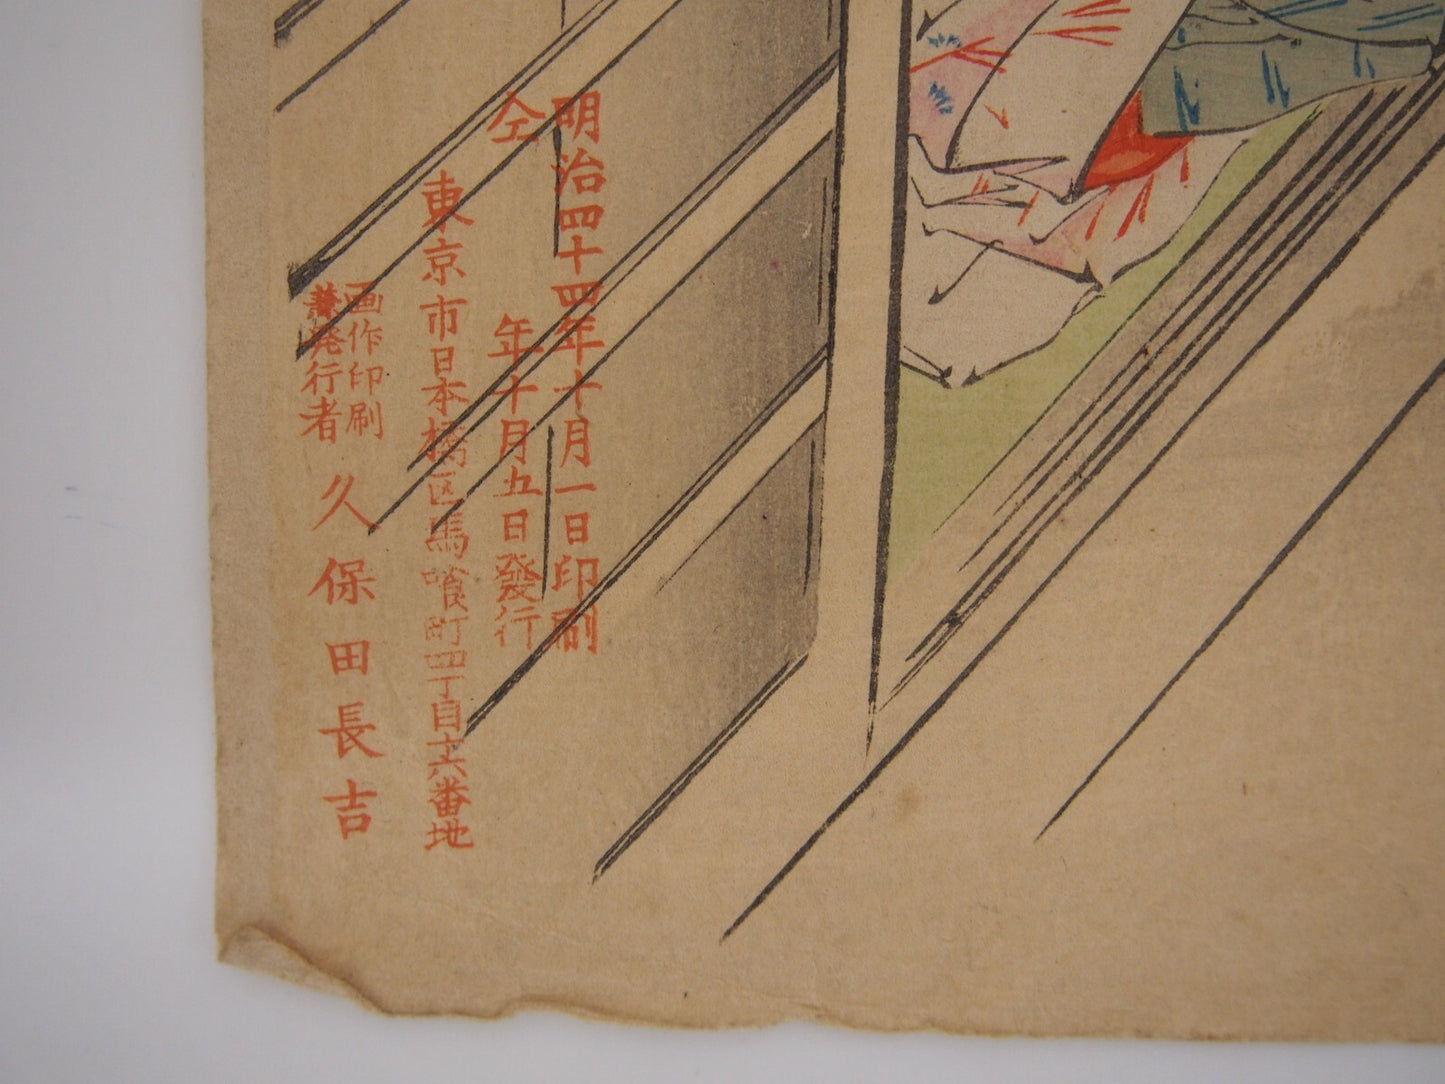 明治四十四年十月一日印刷
仝年十月五日發行
東京市日本橋区馬喰町四丁目十六番地
画作印刷
兼発行者
久保田長吉